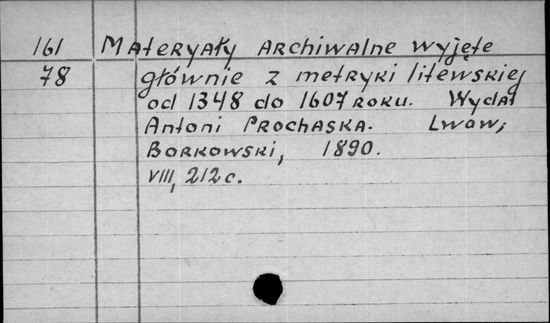 161 Materyały archiwalne wyjęte
78 głównie z metryki litewskiej
od 1348 do 1607 roku. Wydał
Antoni Prochaska. Lwów,
Borkowski, 1890.
VIII, 212 c.